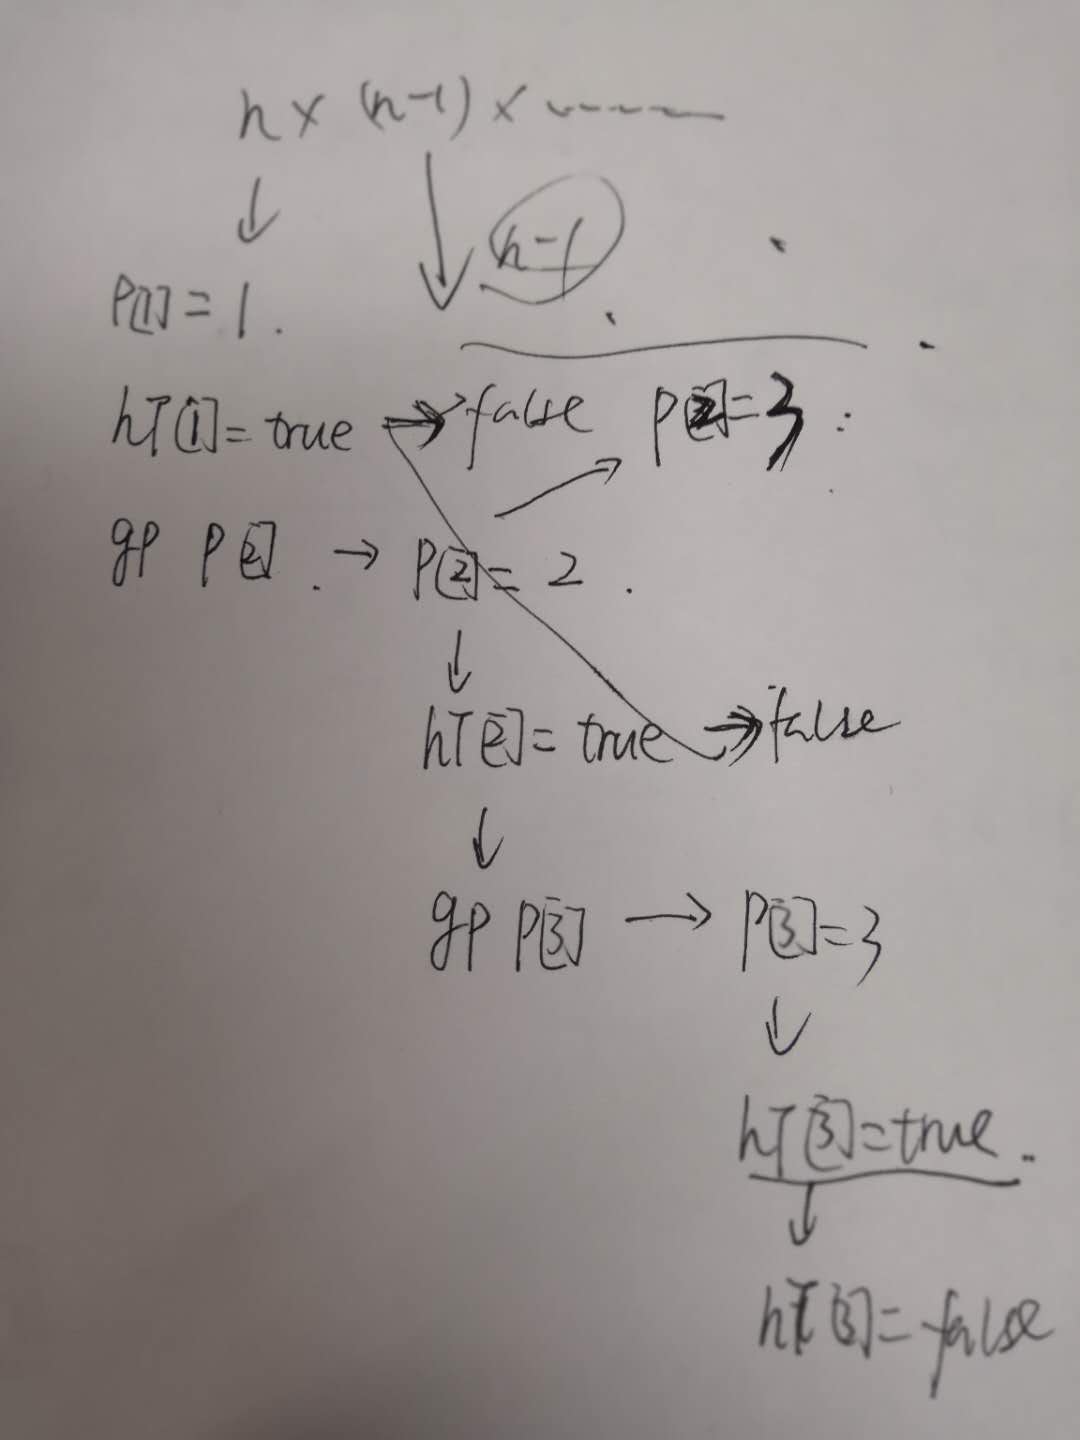 n × (n-1) × ------
↓ ↓ n-1
P[1] = 1.
hT[1] = true → false P[2] = 3
gP P[2]. → P[2] = 2.
↓
hT[2] = true → false
↓
gP P[3] → P[3] = 3
↓
hT[3] = true.
↓
hT[3] = false